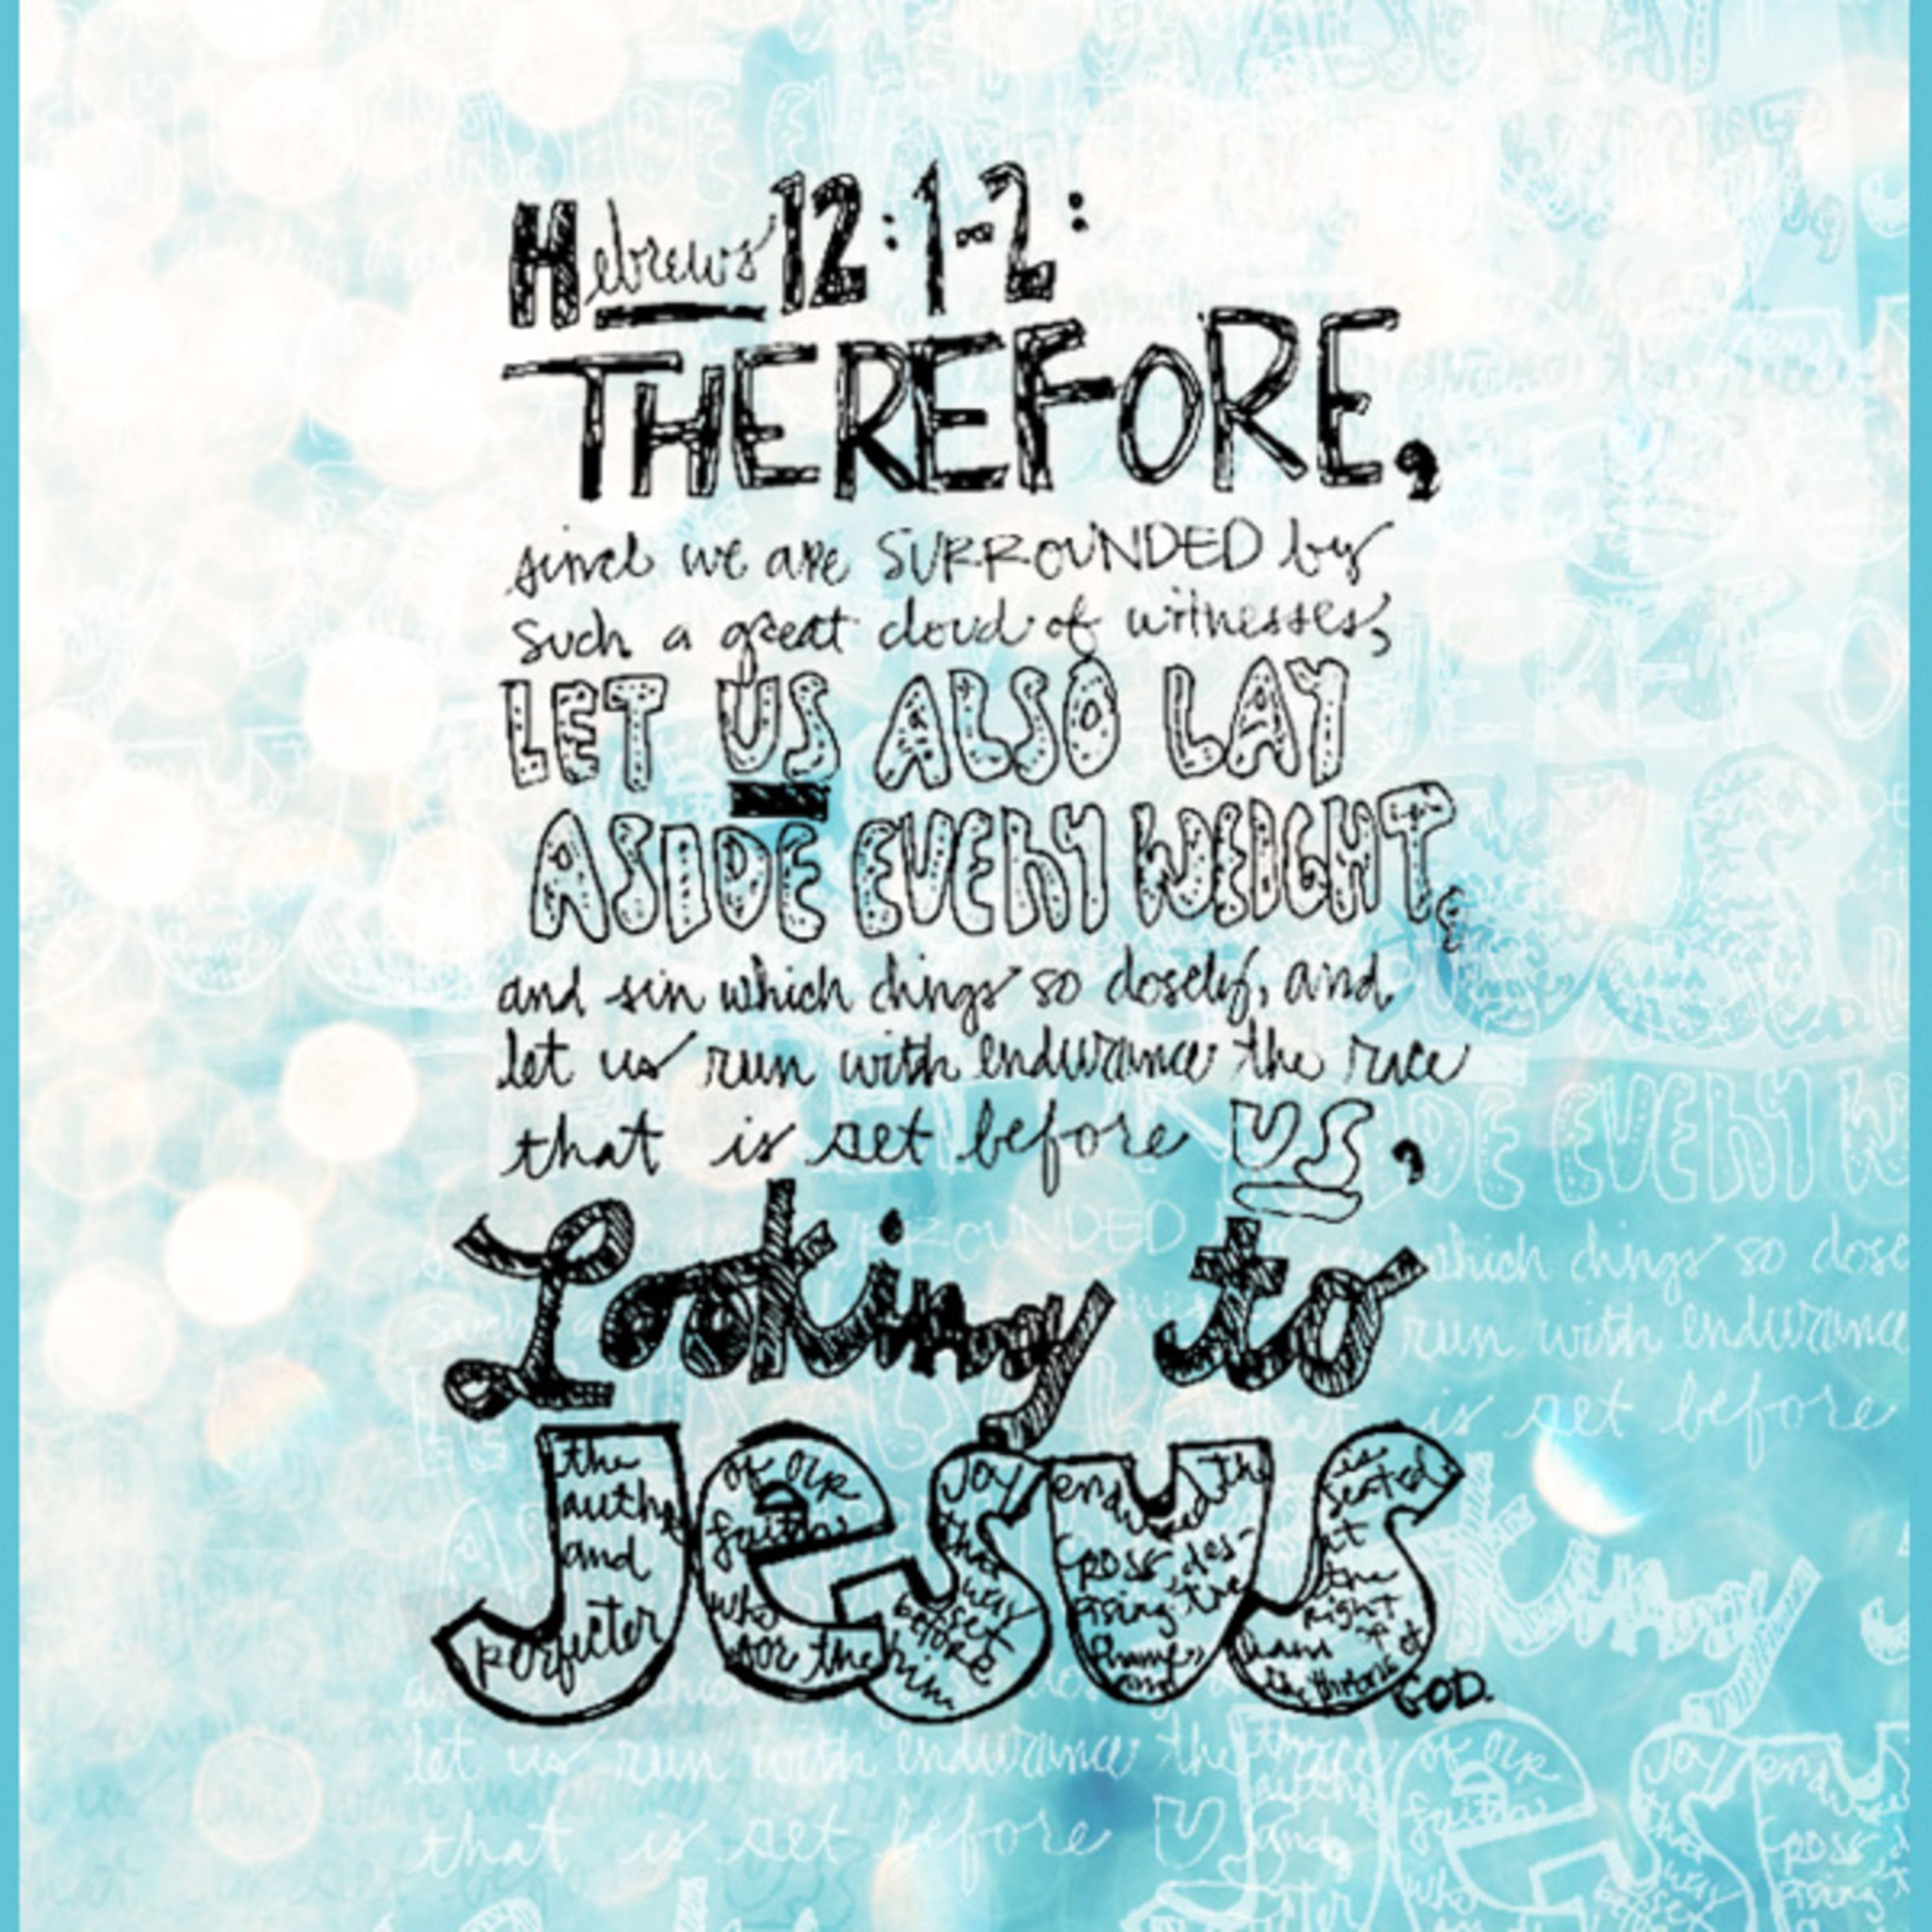 Hebrews 12:1-2:
THEREFORE,
since we are SURROUNDED by
such a great cloud of witnesses,
LET US ALSO LAY
ASIDE EVERY WEIGHT,
and sin which clings so closely, and
let us run with endurance the race
that is set before US,
Looking to
Jesus
the
author
and
perfecter
of our
faith
who
for the
joy
that
was
set
before
him
endured the
cross des-
pising the
shame,
and
is
seated
at
the
Right
hand of
the throne of
GOD.